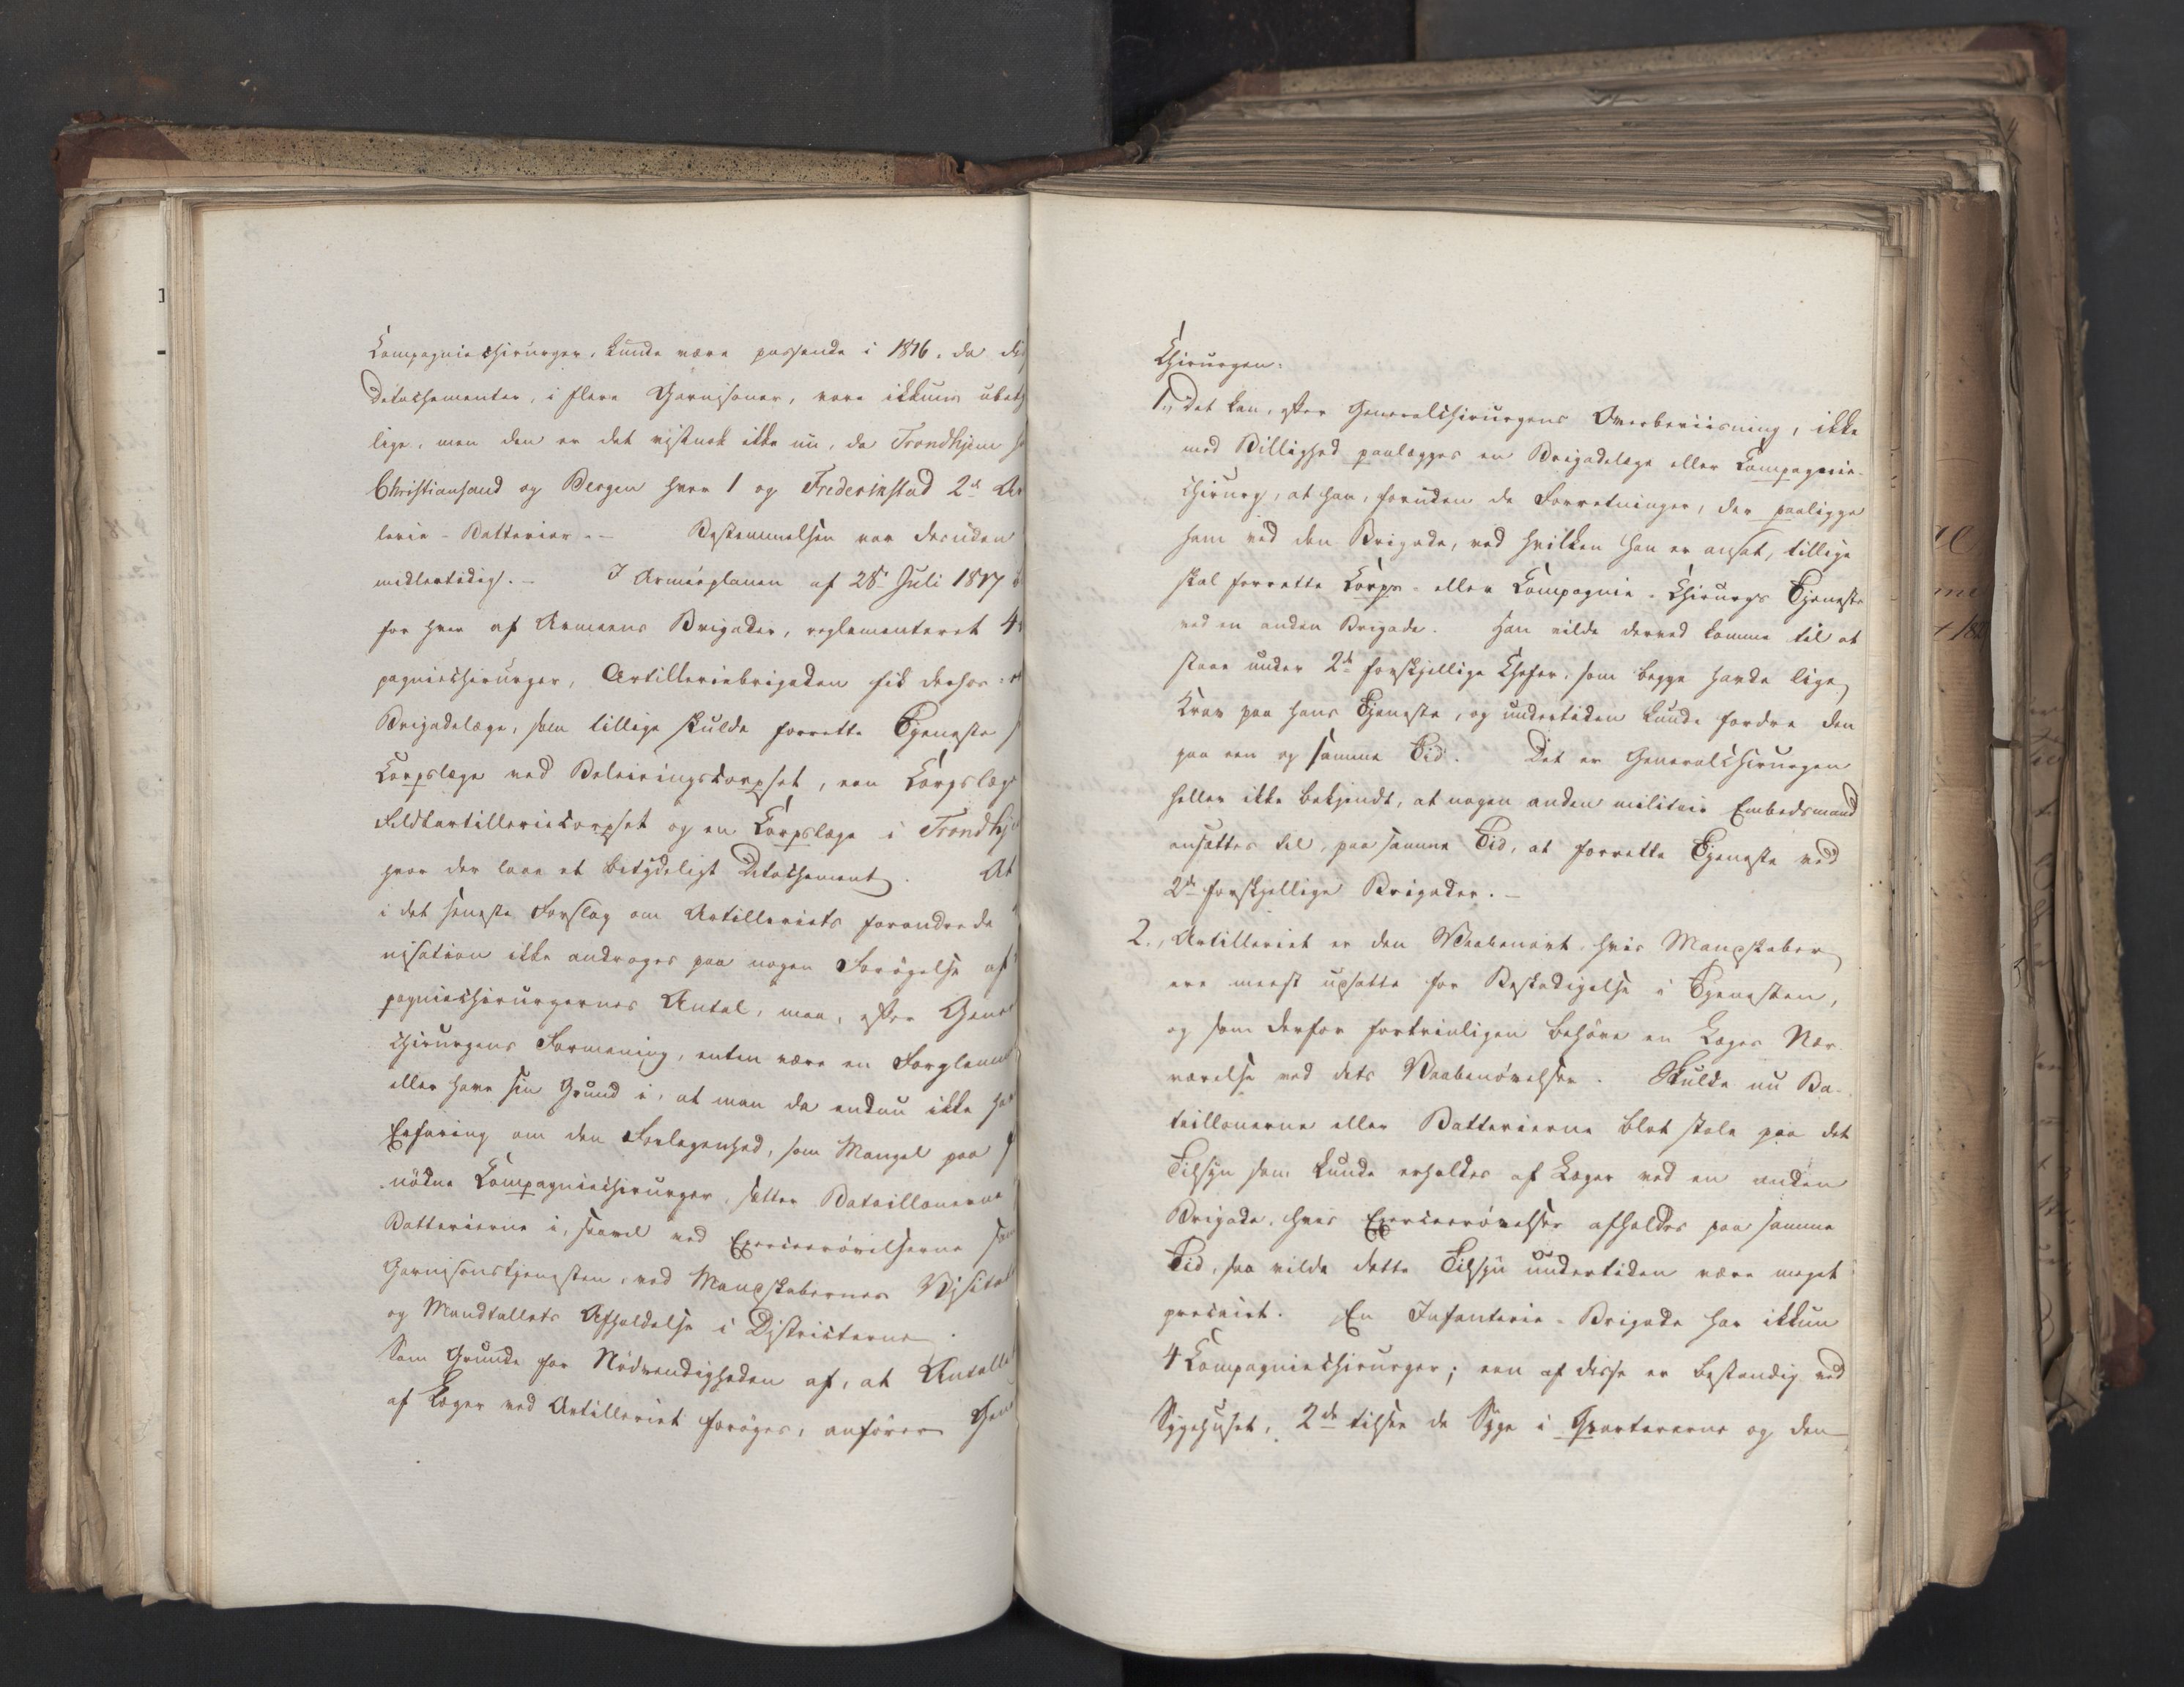 Compagniechirurger, kunde være passende i 1816, da di
Detachementer, i flere Garnisoner, vare ikkuns ubety
lige, men den er det vistnok ikke nu, da Trondhjem
Christiansand og Bergen hver 1 og Frederikstad 2de Ar
lerie-Batterier. - Bestemmelsen var desuden
midlertidig. - I Armeeplanen af 28de Juli 1817
for hver af Armeens Brigader, reglementeret 4
pagniechirurger, Artilleriebrigaden fik derhos
Brigadelæge, som tillige skulde forrette Tjeneste
Corpslæge ved Beleiringscorpset, een Corpslæge
Feldtartilleriecorpset og en Corpslæge i Trondhj
hvor der laae et betydeligt Detachement. At
i det seneste Forslag om Artilleriets forandrede
nisation ikke androges paa nogen Forøgelse af
pagniechirurgernes Antal, maa, efter Gene
chirurgens Formening, enten være en Forglem
eller have sin Grund i, at man da endnu ikke ha
Erfaring om den Forlegenhed, som Mangel paa
nødne Compagniechirurger, sætter Bataillonerne
Batterierne i, saavel ved Exerceerøvelserne som
Garnisonstjenesten, ved Mandskabernes Visitat
og Mandtallets Afholdelse i Districterne.
Som Grunde for Nødvendigheden af, at Antallet
af Læger ved Artilleriet forøges, anfører Gene
Chirurgen:
1., Det kan, efter Generalchirurgens Overbeviisning, ikke
med Billighed paalægges en Brigadelæge eller Compagnie-
chirurg, at han, foruden de Forretninger, der paaligge
ham ved den Brigade, ved hvilken han er ansat, tillige
skal forrette Corps- eller Compagnie-Chirurgs Tjeneste
ved en anden Brigade. Han vilde derved komme til at
staae under 2de forskjellige Chefer, som begge havde lige
Krav paa hans Tjeneste, og undertiden kunde fordre den
paa een og samme Tid. Det er Generalchirurgen
heller ikke bekjendt, at nogen anden militair Embedsmand
ansættes til, paa samme Tid, at forrette Tjeneste ved
2de forskjellige Brigader. -
2., Artilleriet er den Vaabenart hvis Mandskaber
ere meest udsatte for Beskadigelse i Tjenesten,
og som derfor fortrinligen behøve en Læges Nær-
værelse ved dets Vaabenøvelser. Skulde nu Ba-
taillonerne eller Batterierne blot stole paa det
Tilsyn som kunde erholdes af Læger ved en anden
Brigade, hvis Exerceerøvelser afholdes paa samme
Tid, saa vilde dette Tilsyn undertiden være meget
precairt. En Infanterie-Brigade har ikkun
4 Compagniechirurger; een af disse er bestandig ved
Sygehuset, 2de tilsee de Syge i Qvartererne og den